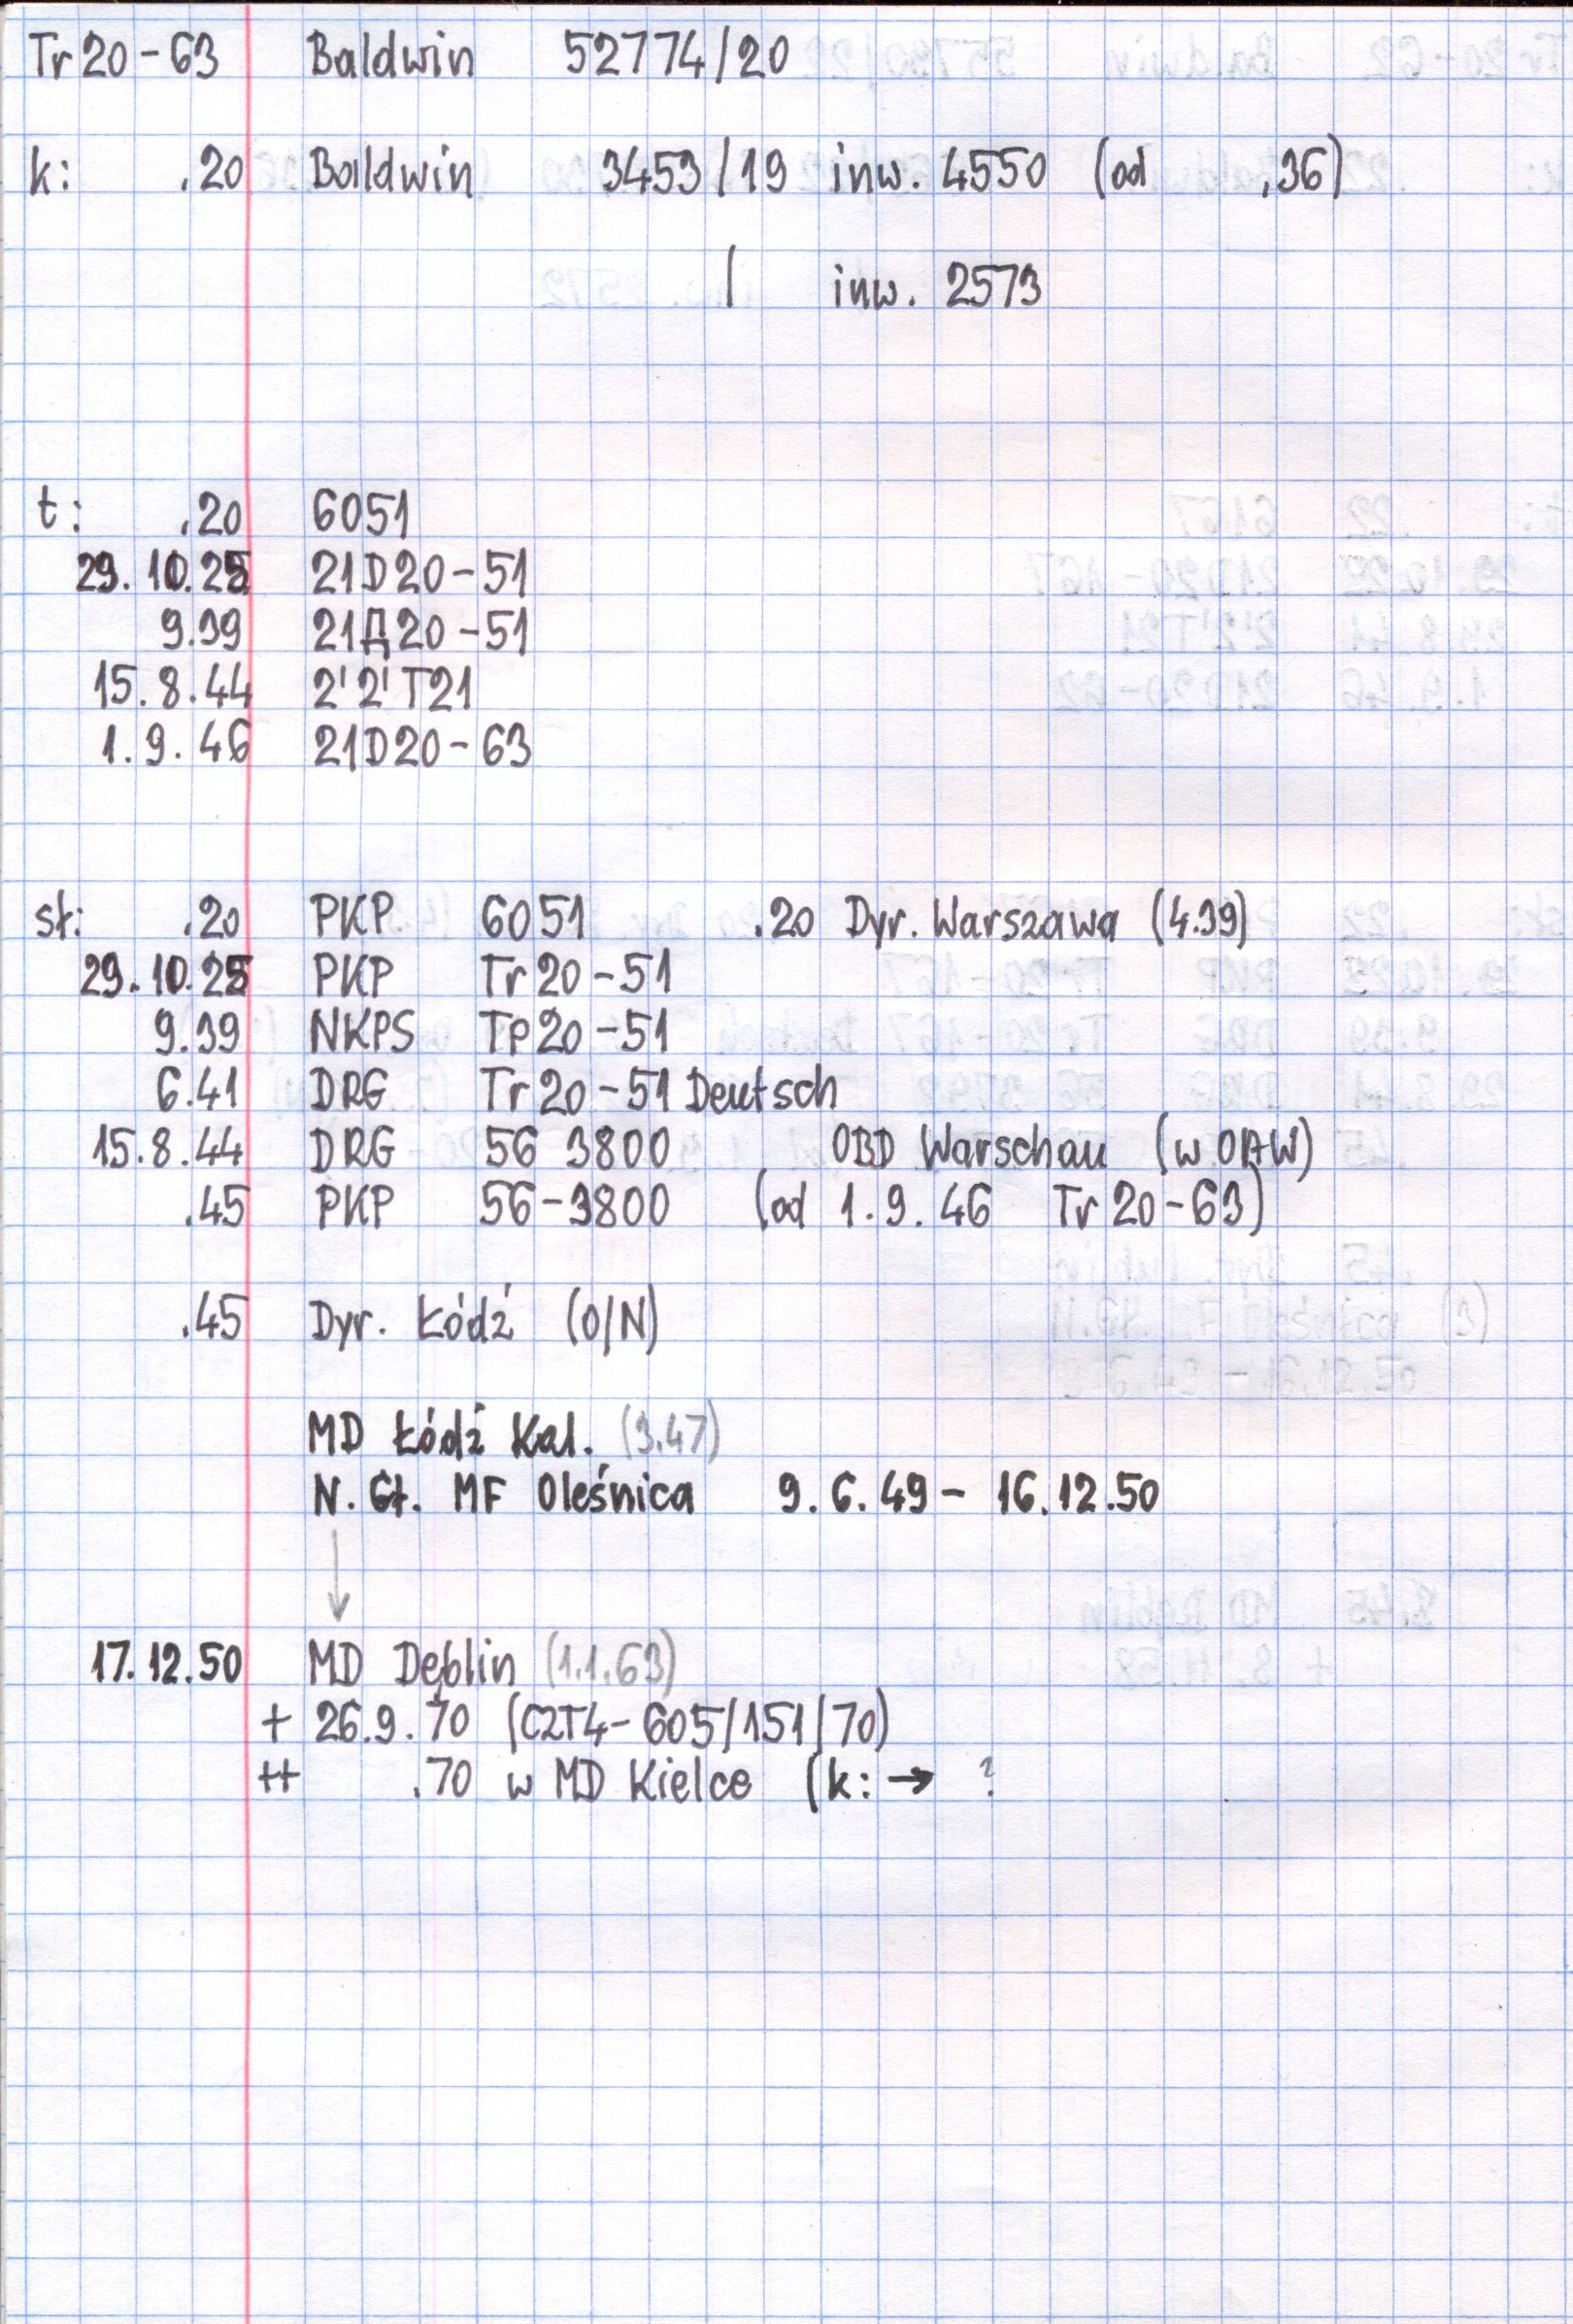 Tr 20-63 Baldwin 52774/20
k: .20 Baldwin 3453/19 inw. 4550 (od .36)
/ inw. 2573
t: .20 6051
29.10.25 21D20-51
9.39 21Д20-51
15.8.44 2'2'T21
1.9.46 21D20-63
sł: .20 PKP 6051 .20 Dyr. Warszawa (4.39)
29.10.25 PKP Tr 20-51
9.39 NKPS Тр 20-51
6.41 DRG Tr 20-51 Deutsch
15.8.44 DRG 56 3800 OBD Warschau (w OAW)
.45 PKP 56-3800 (od 1.9.46 Tr 20-63)
.45 Dyr. Łódź (O/N)
MD Łódź Kal. (3.47)
N. Gł. MF Oleśnica 9.6.49 - 16.12.50
↓
17.12.50 MD Dęblin (1.1.63)
+ 26.9.70 (CZT4-605/151/70)
++ .70 w MD Kielce (k: → ?